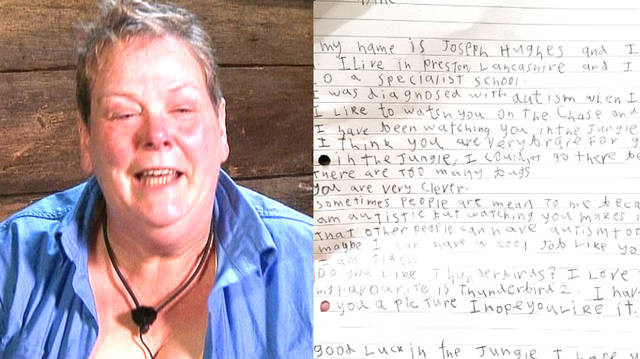 my name is Joseph Hughes and I
I Live in Preston Lancashire and I
o a specialist school.
I was diagnosed with autism when I
I Like to watsh you on the Chase and
I have been watching you in the Jungle
I think you are very brave for g
in the Jungle, I couldnt go there be
There are too many bugs
you are very clever.
sometimes people are mean to me beca
am autistic but watching you makes
that other people can have autism too
maybe I can have a cool job like yo
I am older
Do you like Thunderbirds? I Love
my Favourite is Thunderbird 2. I hav
you a picture I hope you Like it.
good Luck in the Jungle I